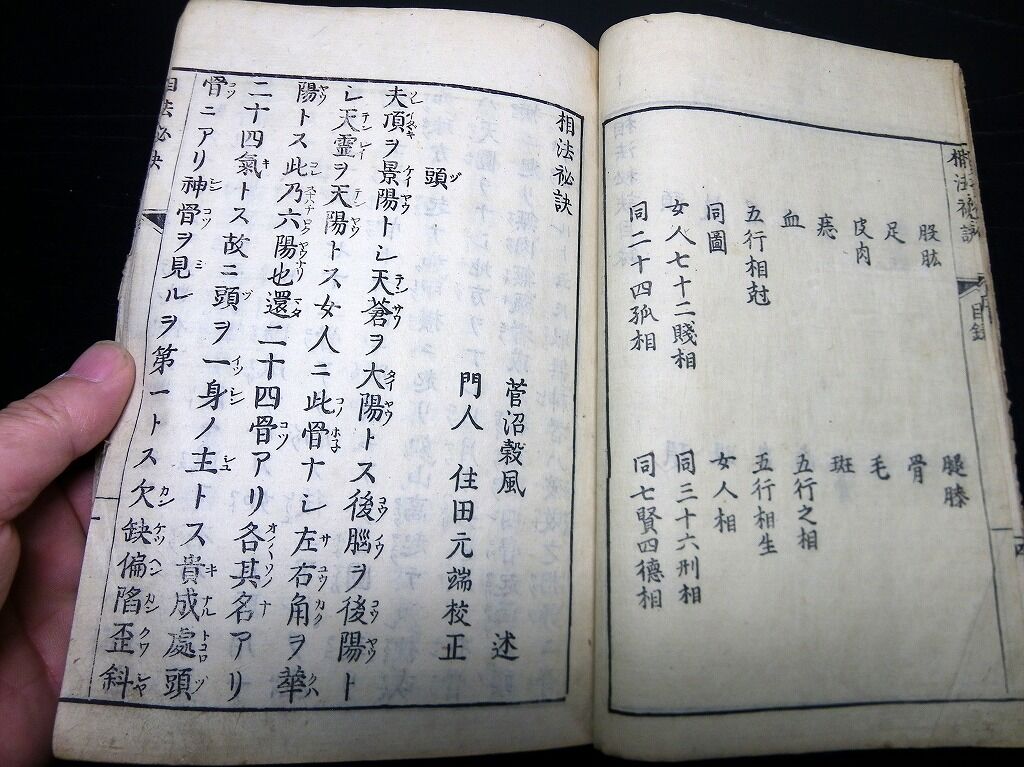 相法秘訣 目録
股肱 腿膝
足 骨
皮肉 毛
痣 斑
血 五行之相
五行相尅 五行相生
同圖 女人相
女人七十二賤相 同三十六刑相
同二十四孤相 同七賢四德相
相法祕訣
菅沼穀風 述
門人 住田元端校正
頭
夫頂ヲ景陽トシ天蒼ヲ大陽トス後腦ヲ後陽ト
シ天靈ヲ天陽トス女人ニ此骨ナシ左右角ヲ華
陽トス此乃六陽也還二十四骨アリ各其名アリ
二十四氣トス故ニ頭ヲ一身ノ主トス貴成處頭
骨ニアリ神骨ヲ見ルヲ第一トス欠缺偏陷歪斜
相法祕訣